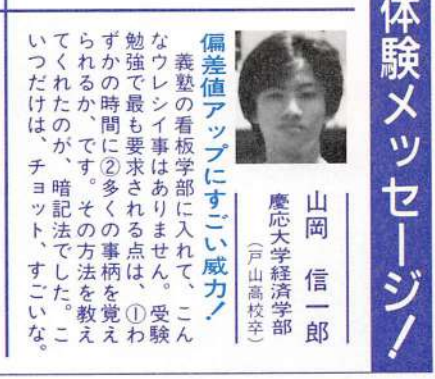 体験メッセージ!
山岡 信一郎
慶応大学経済学部
(戸山高校卒)
偏差値アップにすごい威力!
義塾の看板学部に入れて、こん
なウレシイ事はありません。受験
勉強で最も要求される点は、①わ
ずかの時間に②多くの事柄を覚え
られるか、です。その方法を教え
てくれたのが、暗記法でした。こ
いつだけは、チョット、すごいな。